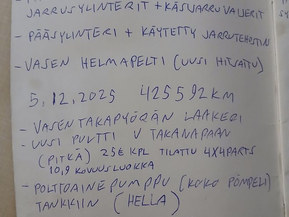 JARRUSYLINTERIT + KÄSIJARRU VAIJERIT
- PÄÄSYLINTERI + KÄYTETTY JARRUTEHOSTIN
- VASEN HELMAPELTI (UUSI HITSATTU)
5.12.2025 425592KM
- VASEN TAKAPYÖRÄN LAAKERI
- UUSI PULTTI V TAKANAPAAN
(PITKÄ) 25€ KPL TILATTU 4X4PARTS
10,9 KOVUUSLUOKKA
- POLTTOAINEPUMPPU (KOKO PÖMPELI)
TANKKIIN (HELLA)